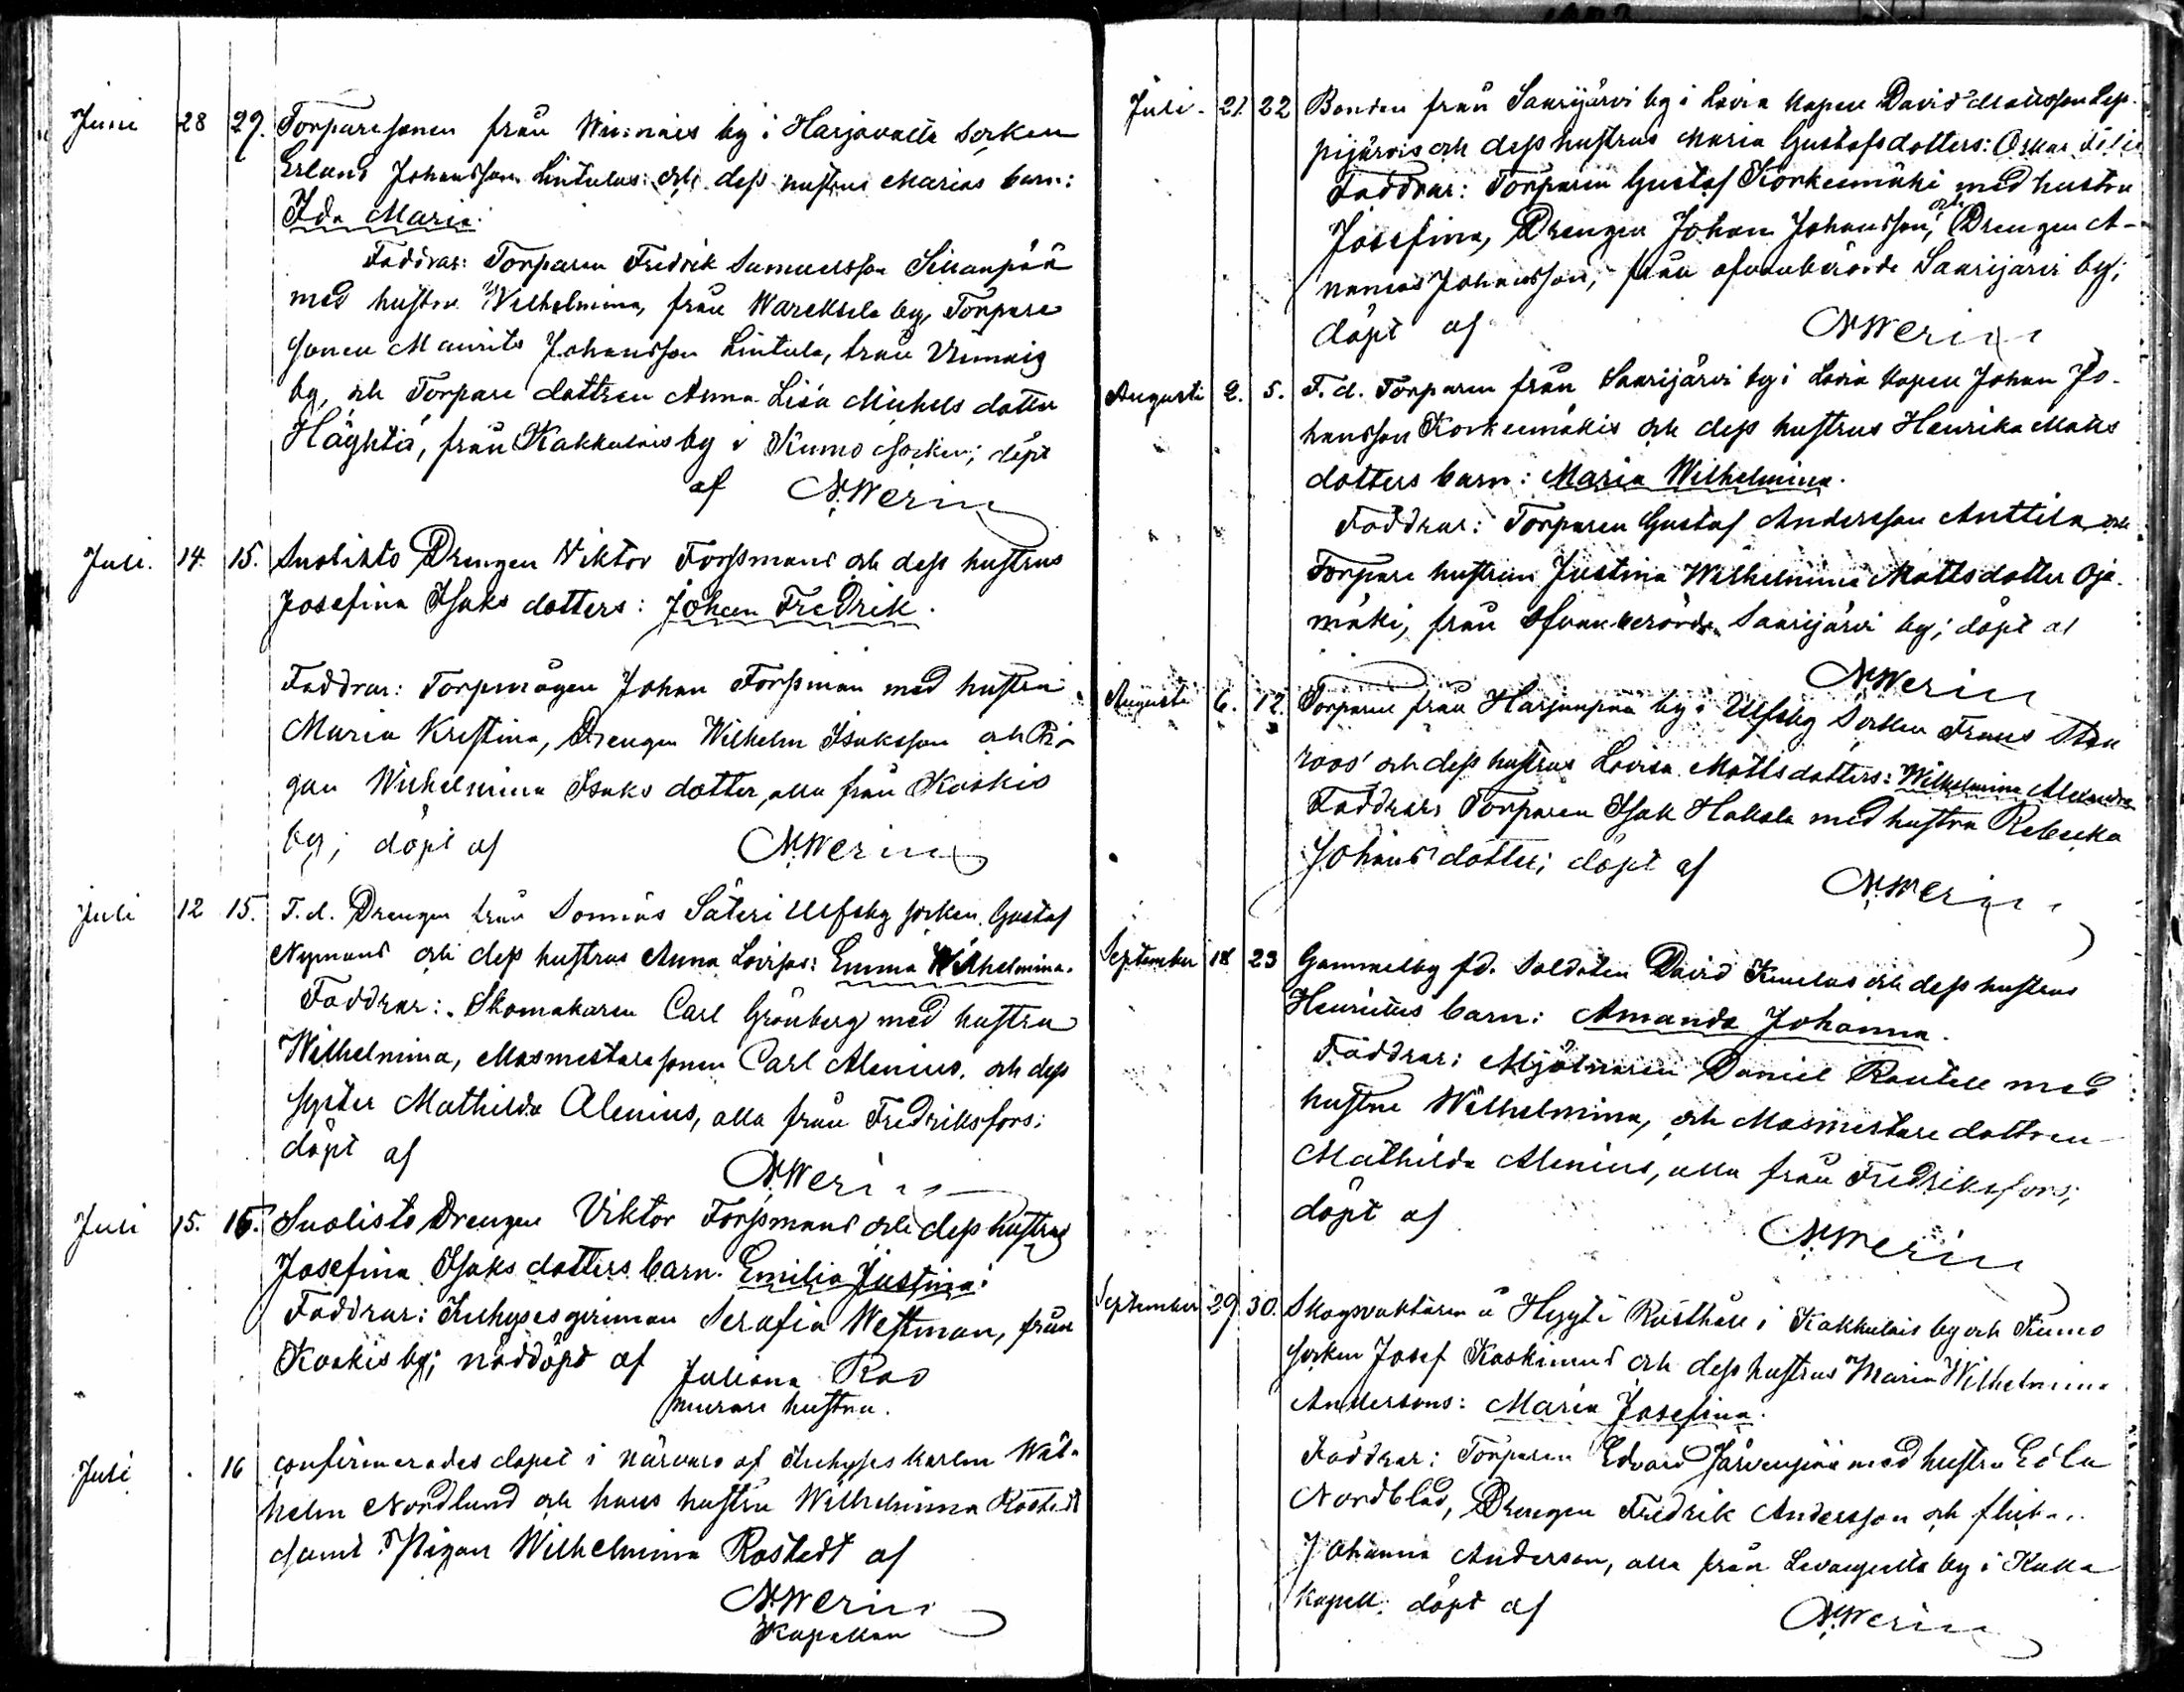 Juni 28 29. Torparesonen från Winnais by i Harjavalta Socken
Erland Johansson Lintulas och dess hustrus Marias barn:
Ida Maria.
Faddrar: Torparen Fredrik Samuelsson Sillanpää
med hustru Wilhelmina, från Wareksela by, Torpare
sonen Maurits Johansson Lintula, från Vinnais
by, och Torpare dottren Anna Lisa Michels dotter
Häyhtiö, från Kakkulais by i Kumo socken; döpt
af N. Werin
Juli. 14. 15. Suolisto Drengen Viktor Forssmans och dess hustrus
Josefina Isaks dotters: Johan Fredrik.
Faddrar: Torpmågen Johan Forssman med hustru
Maria Kristina, Drengen Wilhelm Isaksson och Pi-
gan Wilhelmina Isaks dotter, alla från Koskis
by; döpt af N. Werin
Juli 12 15. F.d. Drengen från Sonnäs Säteri Ulfsby socken Gustaf
Nymans och dess hustrus Anna Lovisas: Emma Wilhelmina.
Faddrar: Skomakaren Carl Grönberg med hustru
Wilhelmina, Masmestaresonen Carl Alenius, och dess
syster Mathilda Alenius, alla från Fredriksfors;
döpt af N. Werin
Juli 15. 15. Suolisto Drengen Viktor Forssmans och dess hustrus
Josefina Isaks dotters barn: Emilia Justina.
Faddrar: Inhyses qvinnan Serafia Westman, från
Koskis by; nöddöpt af Juliana Ros
murare hustru.
Juli 16 confirmerades dopet i närvaro af Inhyses karlen Wil-
helm Nordlund och hans hustru Wilhelmina Rostedt
samt Pigan Wilhelmina Rostedt af
N. Werin
Kapellan
Juli 21. 22 Bonden från Saarijärvi by i Lavia kapell David Mattsson Lep-
pijärvis och dess hustrus Maria Gustafsdotters: Oskar
Faddrar: Torparen Gustaf Korkeemäki med hustru
Josefina, Drengen Johan Johansson, och Drengen A-
nanias Johansson, från ofvanberörde Saarijärvi by;
döpt af N. Werin
Augusti 2. 5. F.d. Torparen från Saarijärvi by i Lavia kapell Johan Jo-
hansson Korkeemäkis och dess hustrus Henrika Matts
dotters barn: Maria Wilhelmina.
Faddrar: Torparen Gustaf Andersson Anttila och
Torpare hustrun Justina Wilhelmina Mattsdotter Oja-
mäki, från ofvanberörde Saarijärvi by; döpt af
N. Werin
Augusti 6. 12. Torparen från Harjunpää by i Ulfsby Socken Frans Sten
roos' och dess hustrus Lovisa Mattsdotters: Wilhelmina Alexandra
Faddrar: Torparen Isak Hakala med hustru Rebecka
Johansdotter; döpt af N. Werin
September 18 23 Gammelby fd. Soldaten David Kuulas och dess hustrus
Henriettas barn: Amanda Johanna.
Faddrar: Mjölnaren Daniel Rautell med
hustru Wilhelmina, och Masmestare dottren
Mathilda Alenius, alla från Fredriksfors;
döpt af N. Werin
September 29. 30. Skogsvaktaren å Hyyti Rusthåll i Kakkulais by och Kumo
socken Josef Koskinens och dess hustrus Maria Wilhelmina
Anderssons: Maria Josefina.
Faddrar: Torparen Edvard Järvenpää med hustru
Nordblad, Drengen Fredrik Andersson och
Johanna Anderson, alla från Levanpelto by i Kulla
kapell; döpt af N. Werin